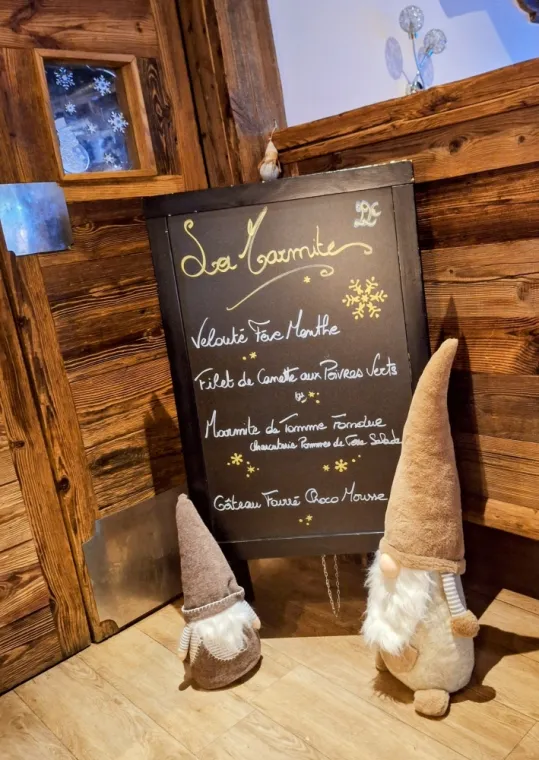 La Marmite
Velouté Fève Menthe
Filet de Canette aux Poivres Verts
ou
Marmite de Tomme Fondue
Charcuterie Pommes de Terre Salade
Gâteau Fourré Choco Mousse